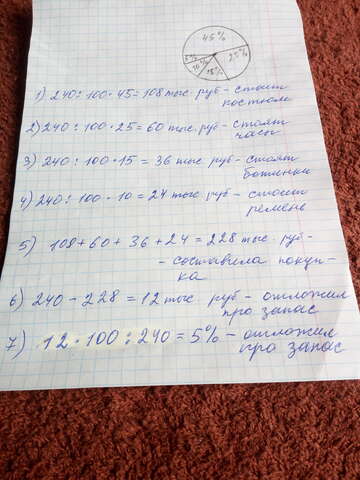 45%
25%
5%
10%
15%
1) 240 : 100 · 45 = 108 тыс. руб - стоит
костюм
2) 240 : 100 · 25 = 60 тыс. руб - стоят
часы
3) 240 : 100 · 15 = 36 тыс руб - стоят
ботинки
4) 240 : 100 · 10 = 24 тыс руб - стоит
ремень
5) 108 + 60 + 36 + 24 = 228 тыс. руб -
- составила покуп-
ка
6) 240 - 228 = 12 тыс. руб - отложил
про запас
7) 12 · 100 : 240 = 5% - отложил
про запас